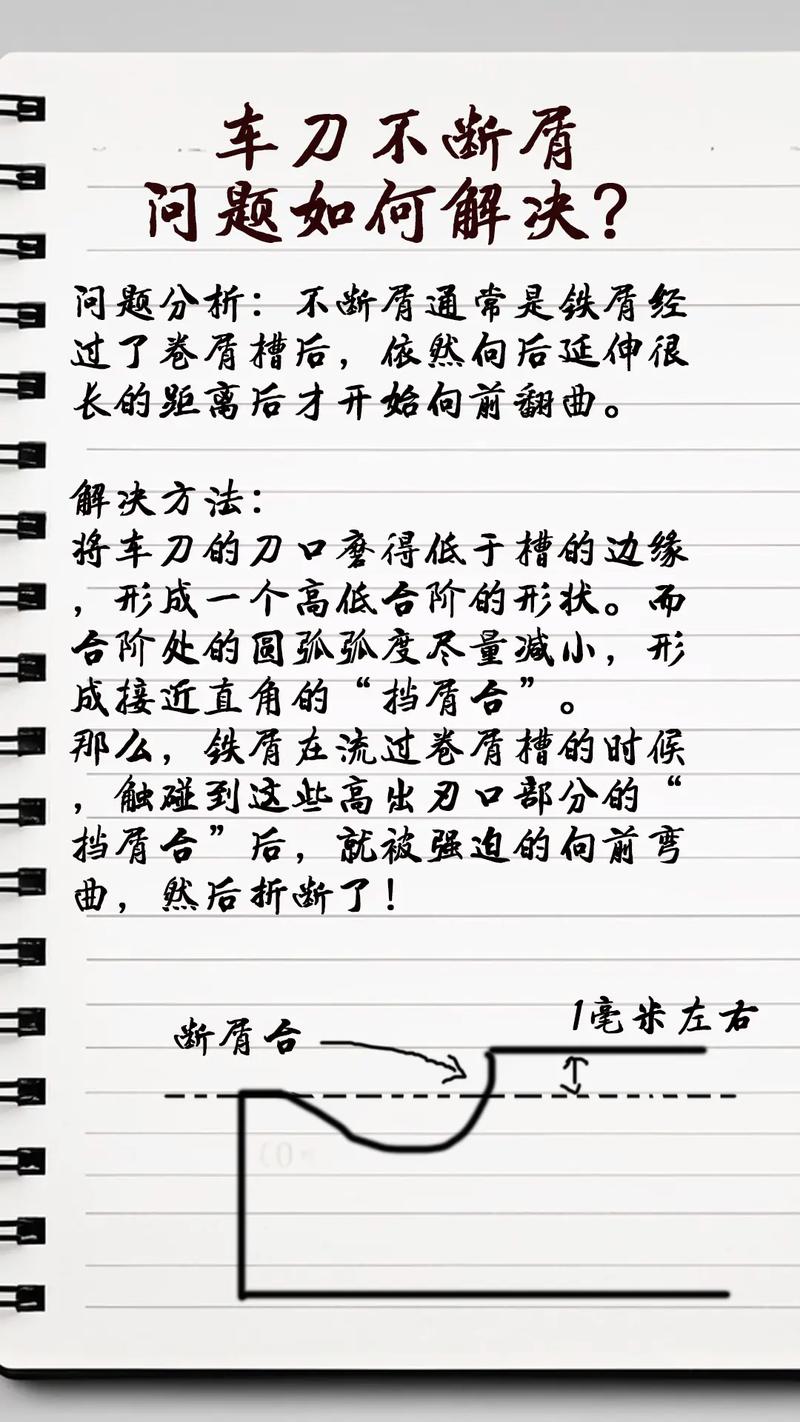 车刀不断屑
问题如何解决?
问题分析：不断屑通常是铁屑经
过了卷屑槽后，依然向后延伸很
长的距离后才开始向前翻曲。
解决方法：
将车刀的刀口磨得低于槽的边缘
，形成一个高低台阶的形状。而
台阶处的圆弧弧度尽量减小，形
成接近直角的“挡屑台”。
那么，铁屑在流过卷屑槽的时候
，触碰到这些高出刃口部分的“
挡屑台”后，就被强迫的向前弯
曲，然后折断了！
1毫米左右
断屑台